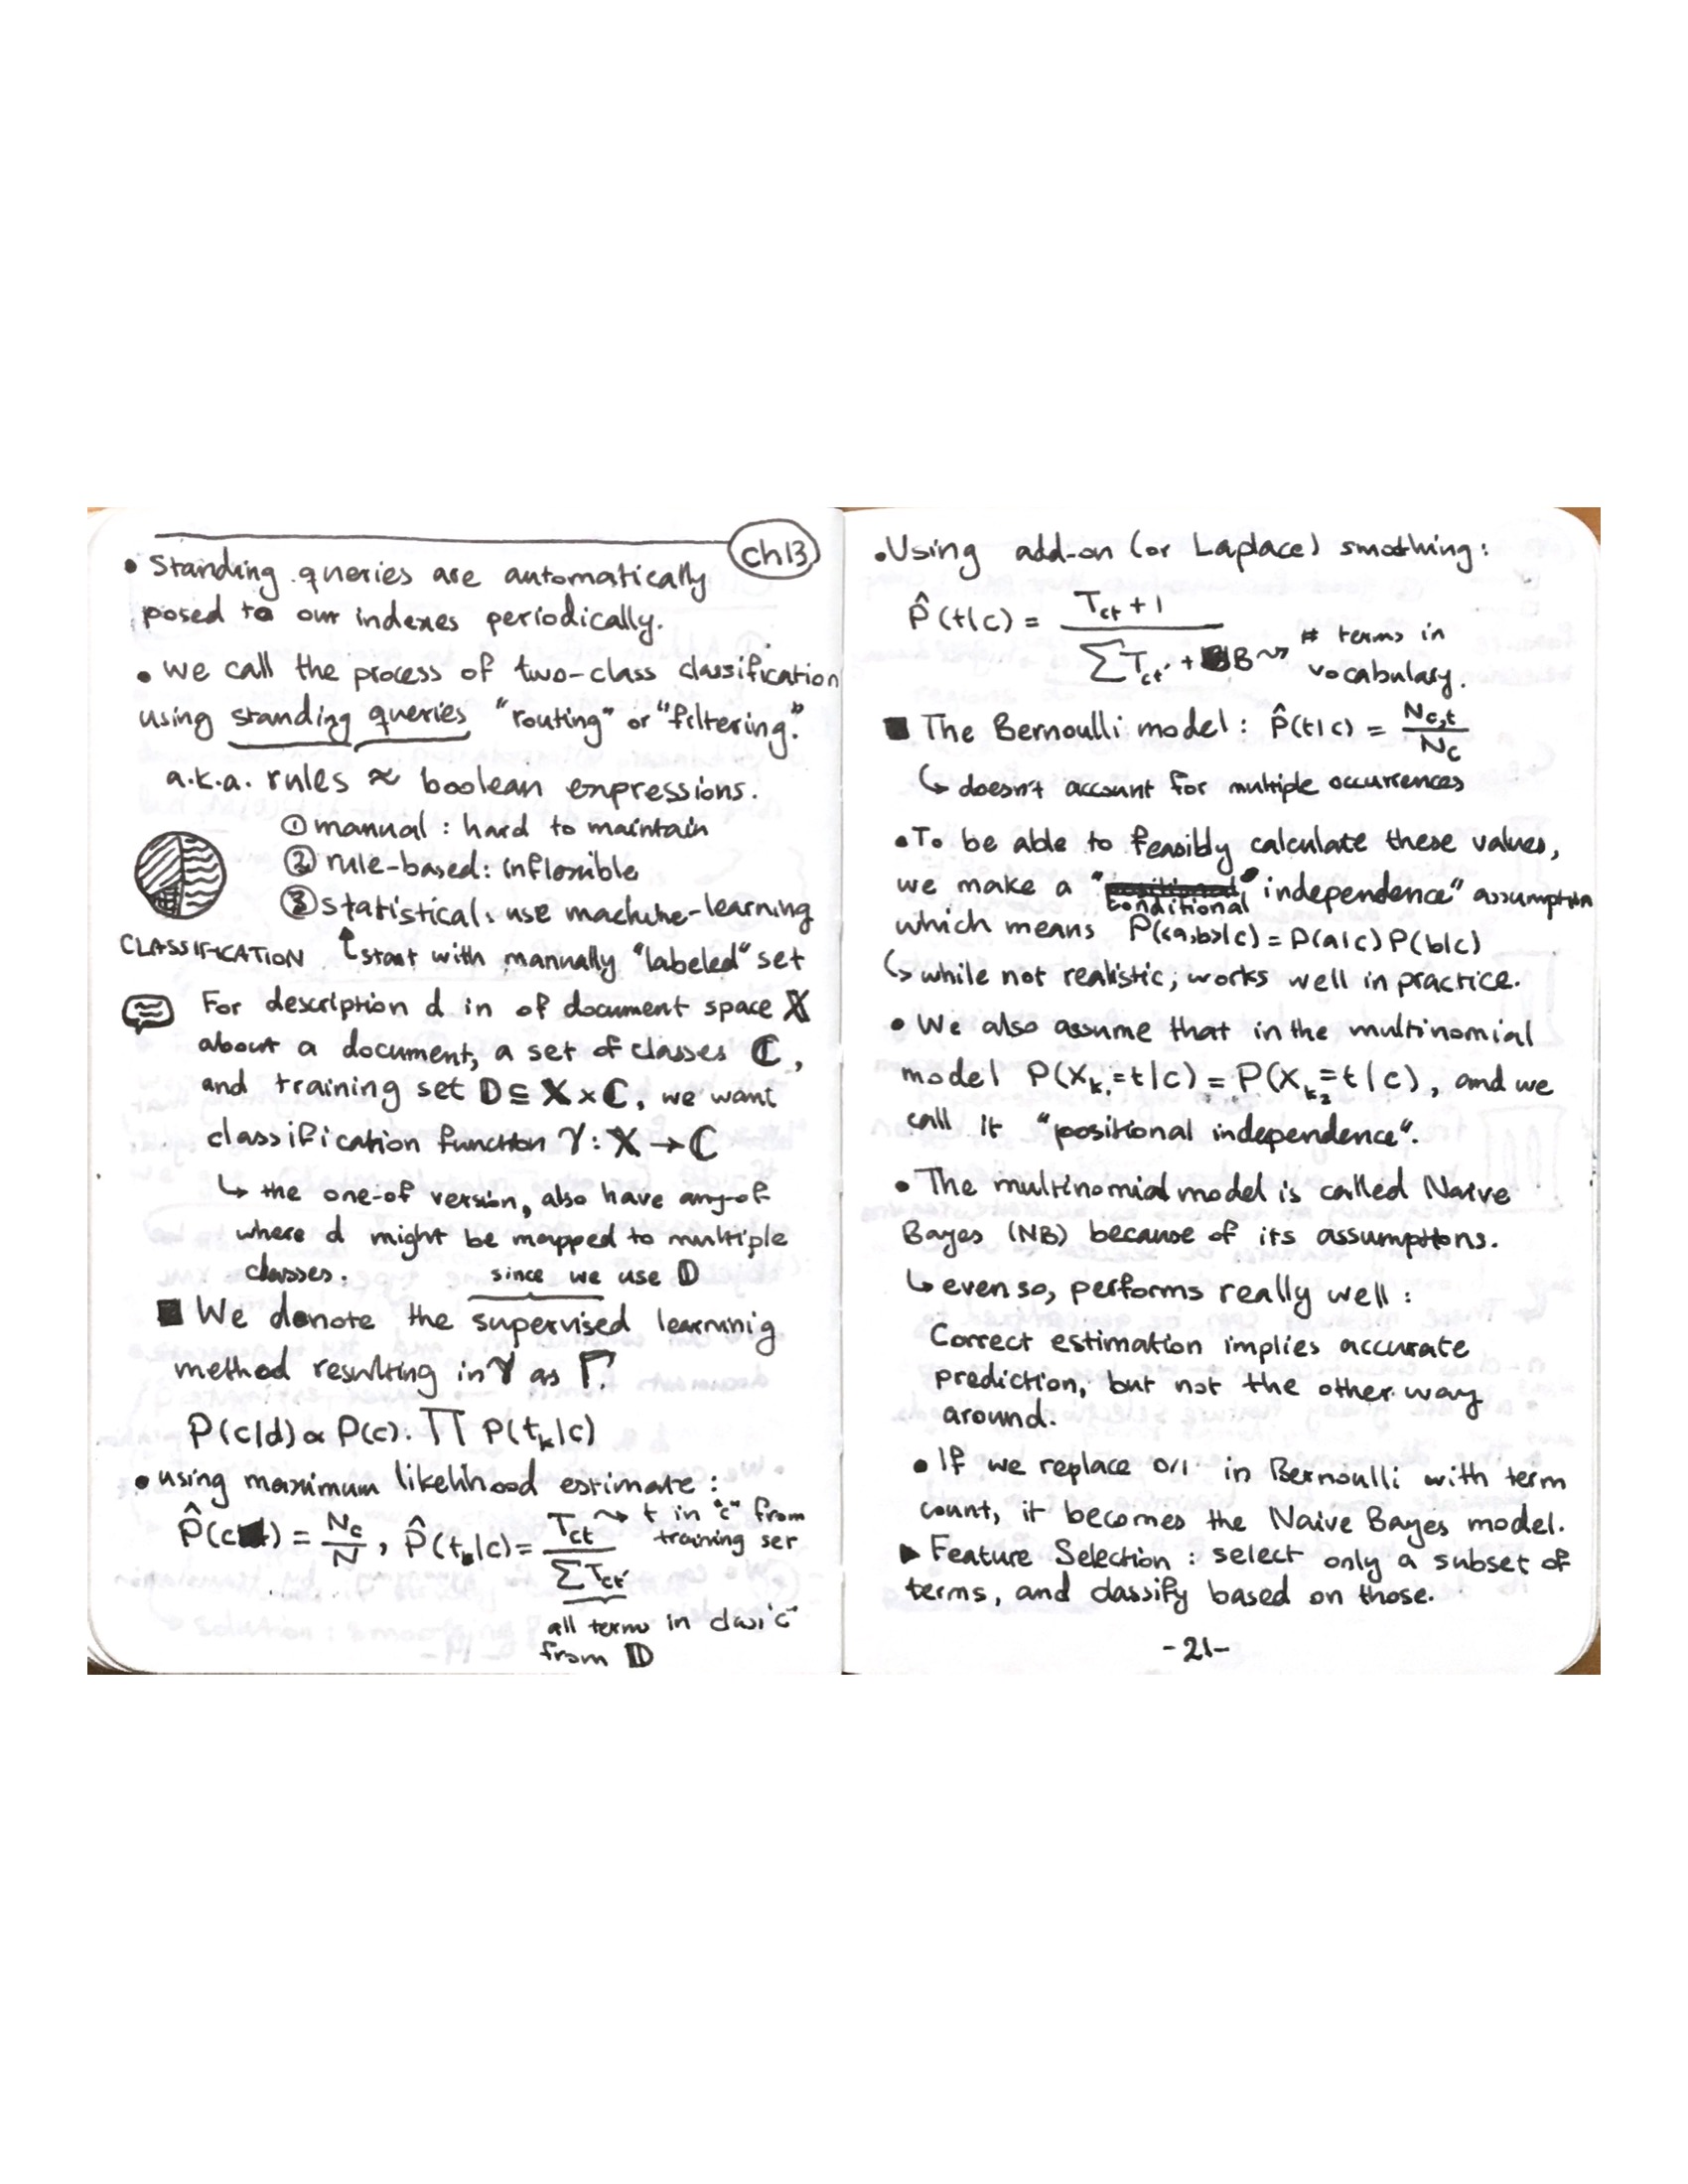 ch13
• Standing queries are automatically
posed to our indexes periodically.
• We call the process of two-class classification
using standing queries "routing" or "filtering."
a.k.a. rules ≈ boolean expressions.
① manual : hard to maintain
② rule-based: inflexible
③ statistical: use machine-learning
CLASSIFICATION ↑ start with mannally "labeled" set
For description d in of document space 𝕏
about a document, a set of classes ℂ,
and training set 𝔻 ⊆ 𝕏 × ℂ, we want
classification function γ: 𝕏 → ℂ
↳ the one-of version, also have any-of
where d might be mapped to multiple
classes.
since we use 𝔻
■ We denote the supervised learning
method resulting in γ as Γ.
P(c|d) ∝ P(c). ∏ P(t_k|c)
• using maximum likelihood estimate :
P̂(c) = N_c/N , P̂(t_k|c) = T_ct/∑T_ct' ⇝ t in "c" from
training set
all terms in class "c"
from 𝔻
• Using add-on (or Laplace) smothing:
P̂(t|c) = (T_ct + 1)/(∑T_ct' + B) ⇝ # terms in
vocabulary.
■ The Bernoulli model : P̂(t|c) = N_c,t/N_c
↳ doesn't account for multiple occurrences
• To be able to feasibly calculate these values,
we make a "conditional independence" assumption
which means P(<a,b>|c) = P(a|c) P(b|c)
↳ while not realistic; works well in practice.
• We also assume that in the multinomial
model P(X_k₁=t|c) = P(X_k₂=t|c), and we
call it "positional independence".
• The multinomial model is called Naive
Bayes (NB) because of its assumptions.
↳ even so, performs really well :
Correct estimation implies accurate
prediction, but not the other way
around.
• If we replace 0/1 in Bernoulli with term
count, it becomes the Naive Bayes model.
▶ Feature Selection : select only a subset of
terms, and classify based on those.
-21-